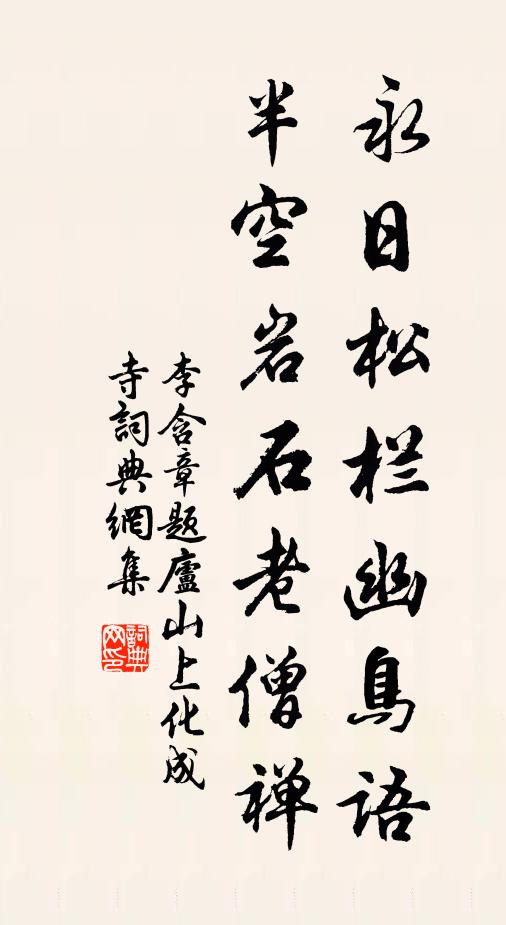 永日松栏幽鳥语
半空岩石老僧禅
李含章题廬山上化成
寺詞典網集
詞典网印